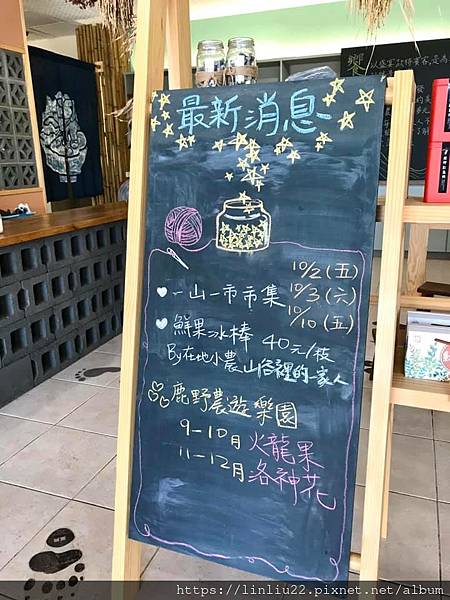 最新消息
10/2(五)
一山一市市集 10/3(六)
10/10(五)
鮮果冰棒 40元/枝
By在地小農山谷裡的一家人
鹿野農遊樂園
9-10月火龍果
11-12月洛神花
https://linliu22.pixnet.net/album